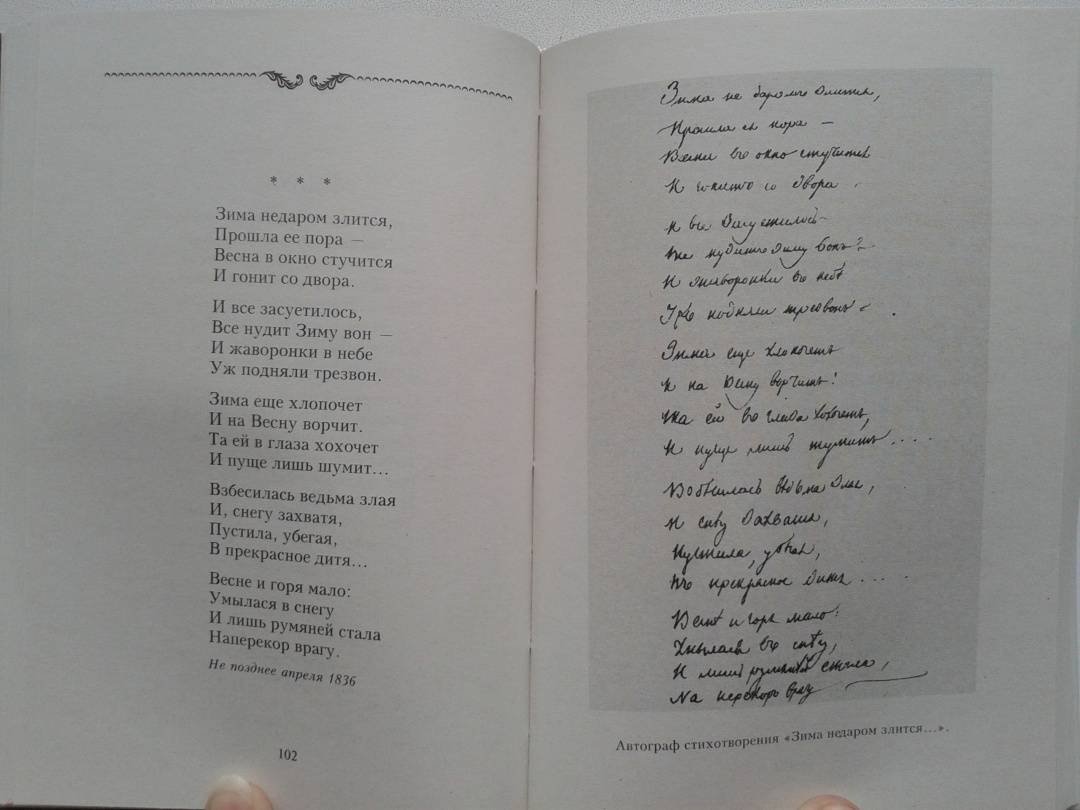 * * *
Зима недаром злится,
Прошла ее пора —
Весна в окно стучится
И гонит со двора.
И все засуетилось,
Все нудит Зиму вон —
И жаворонки в небе
Уж подняли трезвон.
Зима еще хлопочет
И на Весну ворчит.
Та ей в глаза хохочет
И пуще лишь шумит...
Взбесилась ведьма злая
И, снегу захватя,
Пустила, убегая,
В прекрасное дитя...
Весне и горя мало:
Умылася в снегу
И лишь румяней стала
Наперекор врагу.
Не позднее апреля 1836
102
Зима не даромъ злится,
Прошла ея пора —
Весна въ окно стучится
И гонитъ со двора.
И все засуетилось —
Все нудитъ Зиму вонъ —
И жаворонки въ небѣ
Ужъ подняли трезвонъ.
Зима еще хлопочетъ
И на Весну ворчитъ!
Та ей въ глаза хохочетъ,
И пуще лишь шумитъ....
Взбѣсилась вѣдьма злая,
И снѣгу захватя,
Пустила, убѣгая,
Въ прекрасное дитя....
Веснѣ и горя мало:
Умылася въ снѣгу,
И лишь румянѣй стала,
На перекоръ врагу
Автограф стихотворения «Зима недаром злится...».